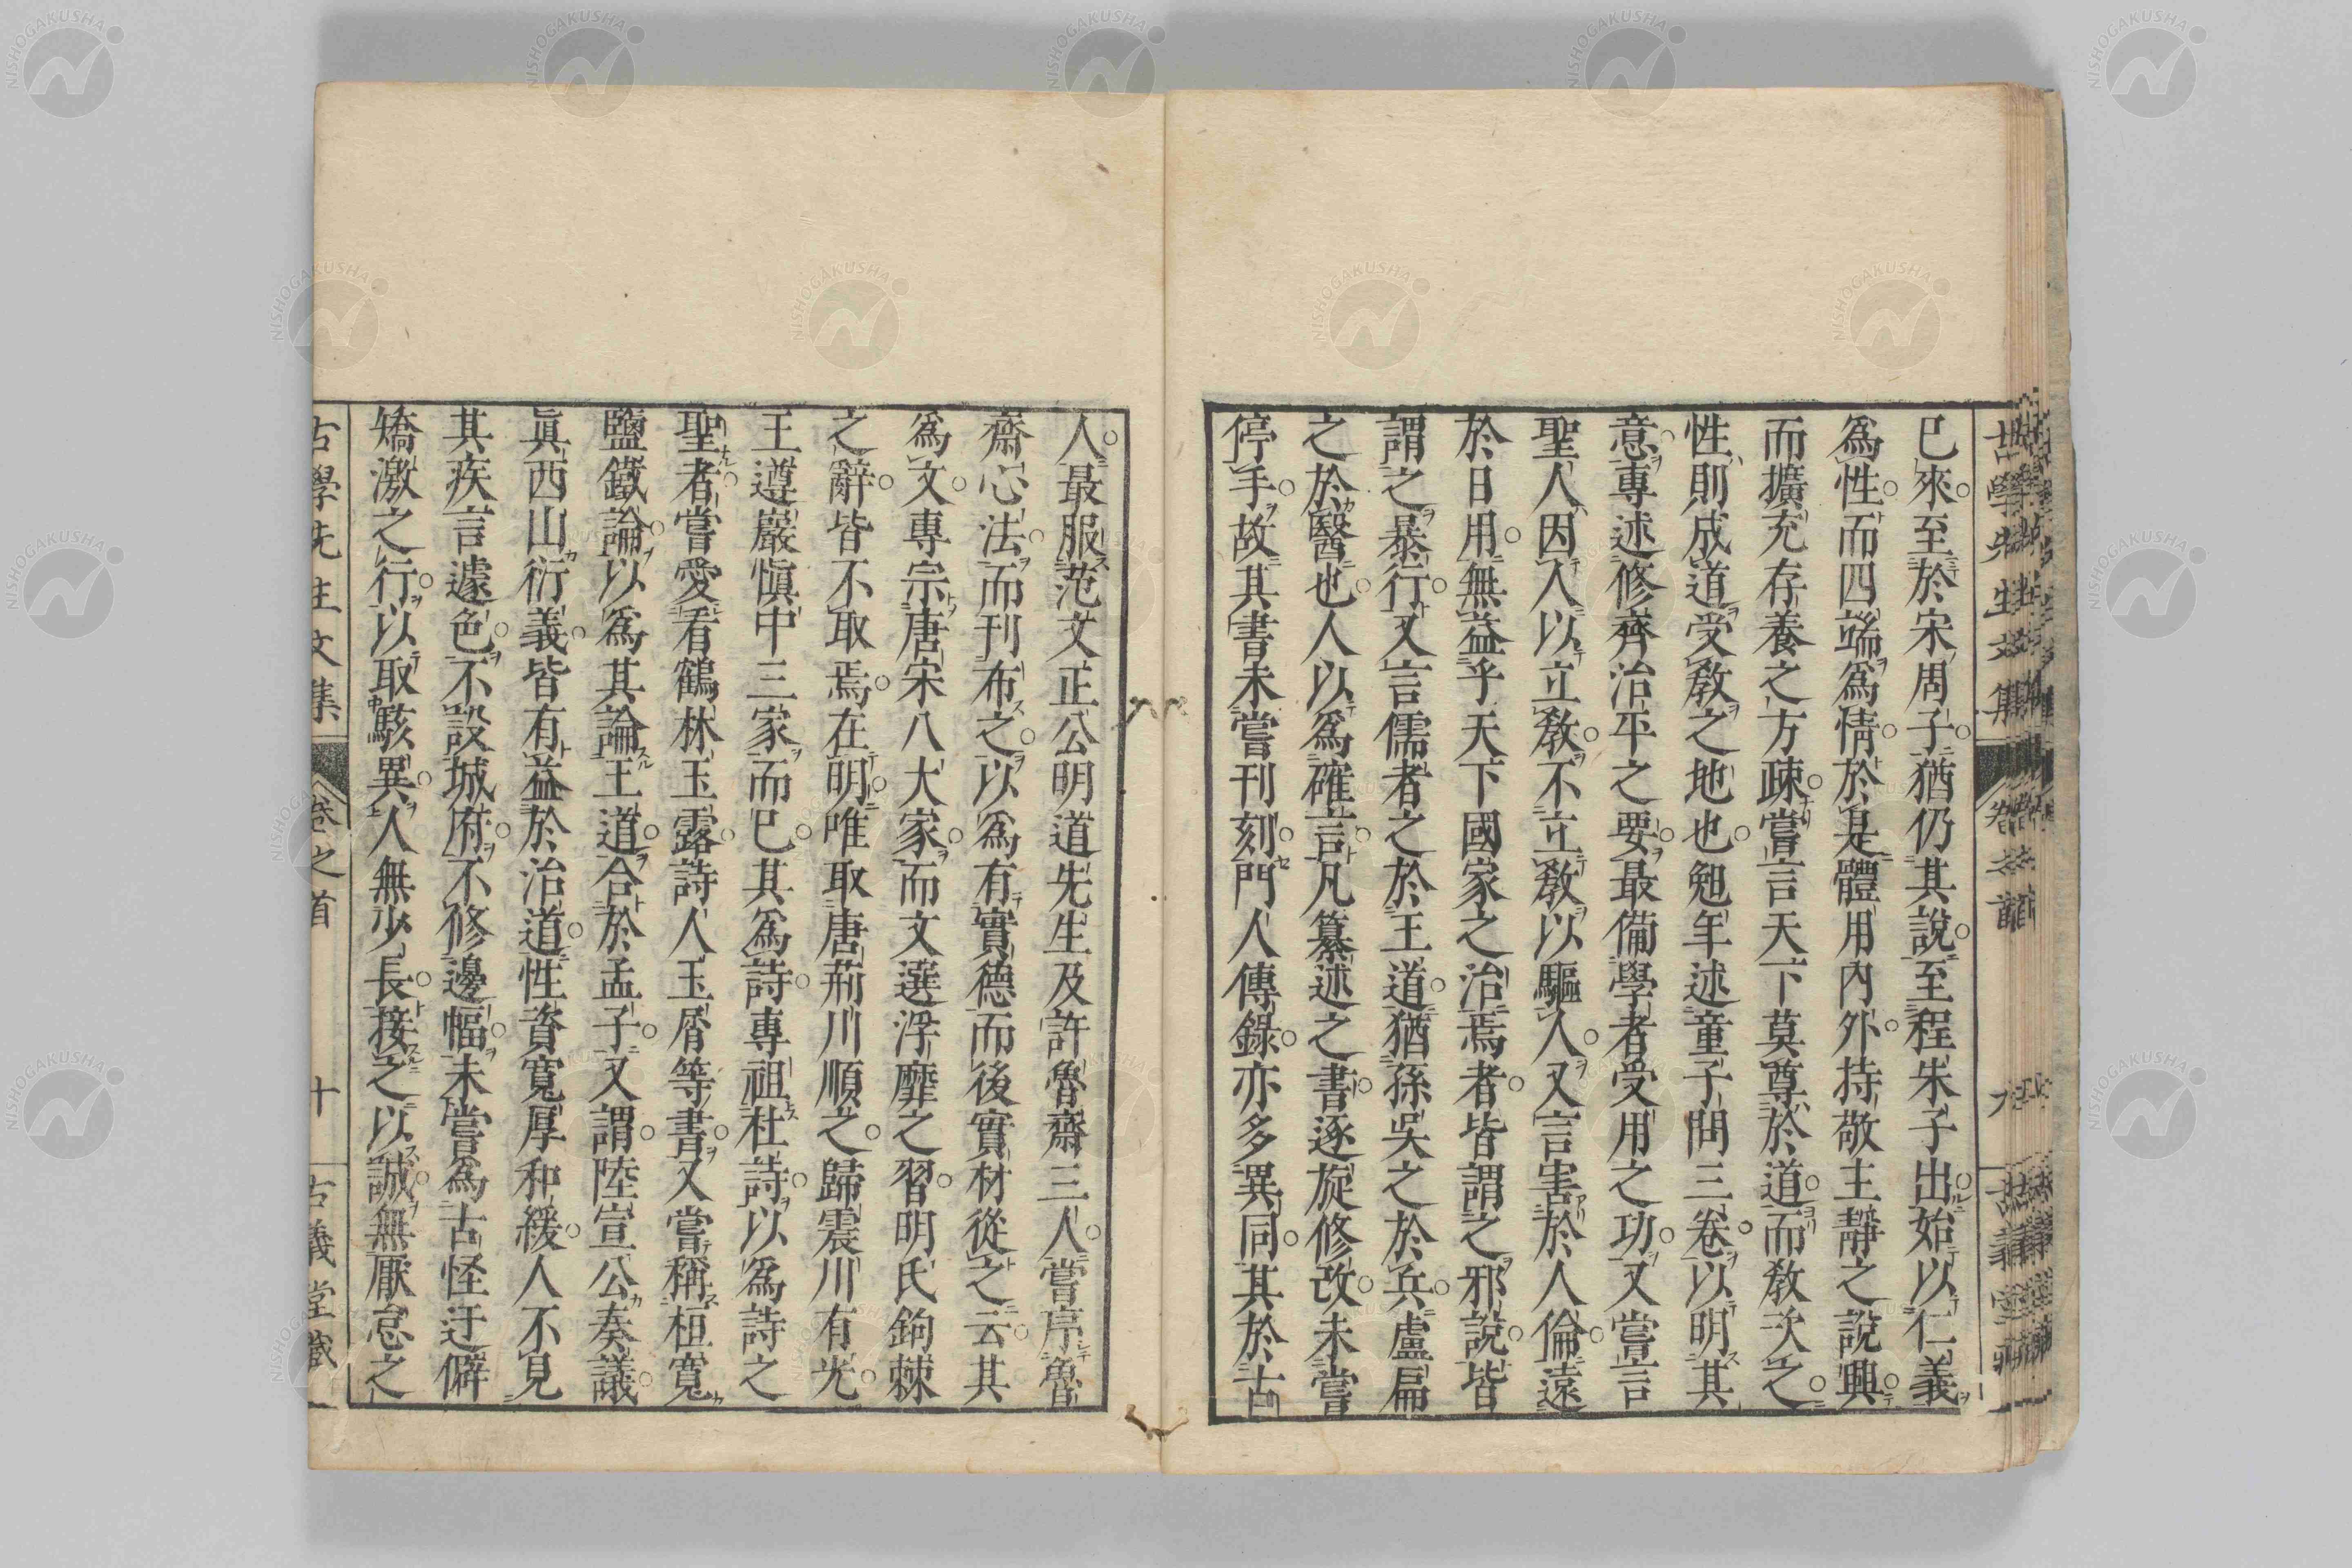 已來至於宋周子猶仍其說至程朱子出始以仁義
爲性而四端爲情於是體用內外持敬主靜之說興
而擴充存養之方疎嘗言天下莫尊於道而敎次之
性則成道受敎之地也勉年述童子問三卷以明其
意專述修齊治平之要最備學者受用之功又嘗言
聖人因人以立敎不立敎以驅人又言害於人倫遠
於日用無益乎天下國家之治焉者皆謂之邪說皆
謂之暴行又言儒者之於王道猶孫吳之於兵盧扁
之於醫也人以爲確言凡纂述之書逐旋修改未嘗
停手故其書未嘗刊刻門人傳錄亦多異同其於古
人最服范文正公明道先生及許魯齋三人嘗序魯
齋心法而刊布之以爲有實德而後實材從之云其
爲文專宗唐宋八大家而文選浮靡之習明氏鉤棘
之辭皆不取焉在明唯取唐荊川順之歸震川有光
王遵巖愼中三家而已其爲詩專祖杜詩以爲詩之
聖者嘗愛看鶴林玉露詩人玉屑等書又嘗稱桓寬
鹽鐵論以爲其論王道合於孟子又謂陸宣公奏議
眞西山衍義皆有益於治道性資寬厚和緩人不見
其疾言遽色不設城府不修邊幅未嘗爲古怪迂僻
矯激之行以取駭異人無少長接之以誠無厭怠之
古學先生文集 卷之首 十 古義堂藏